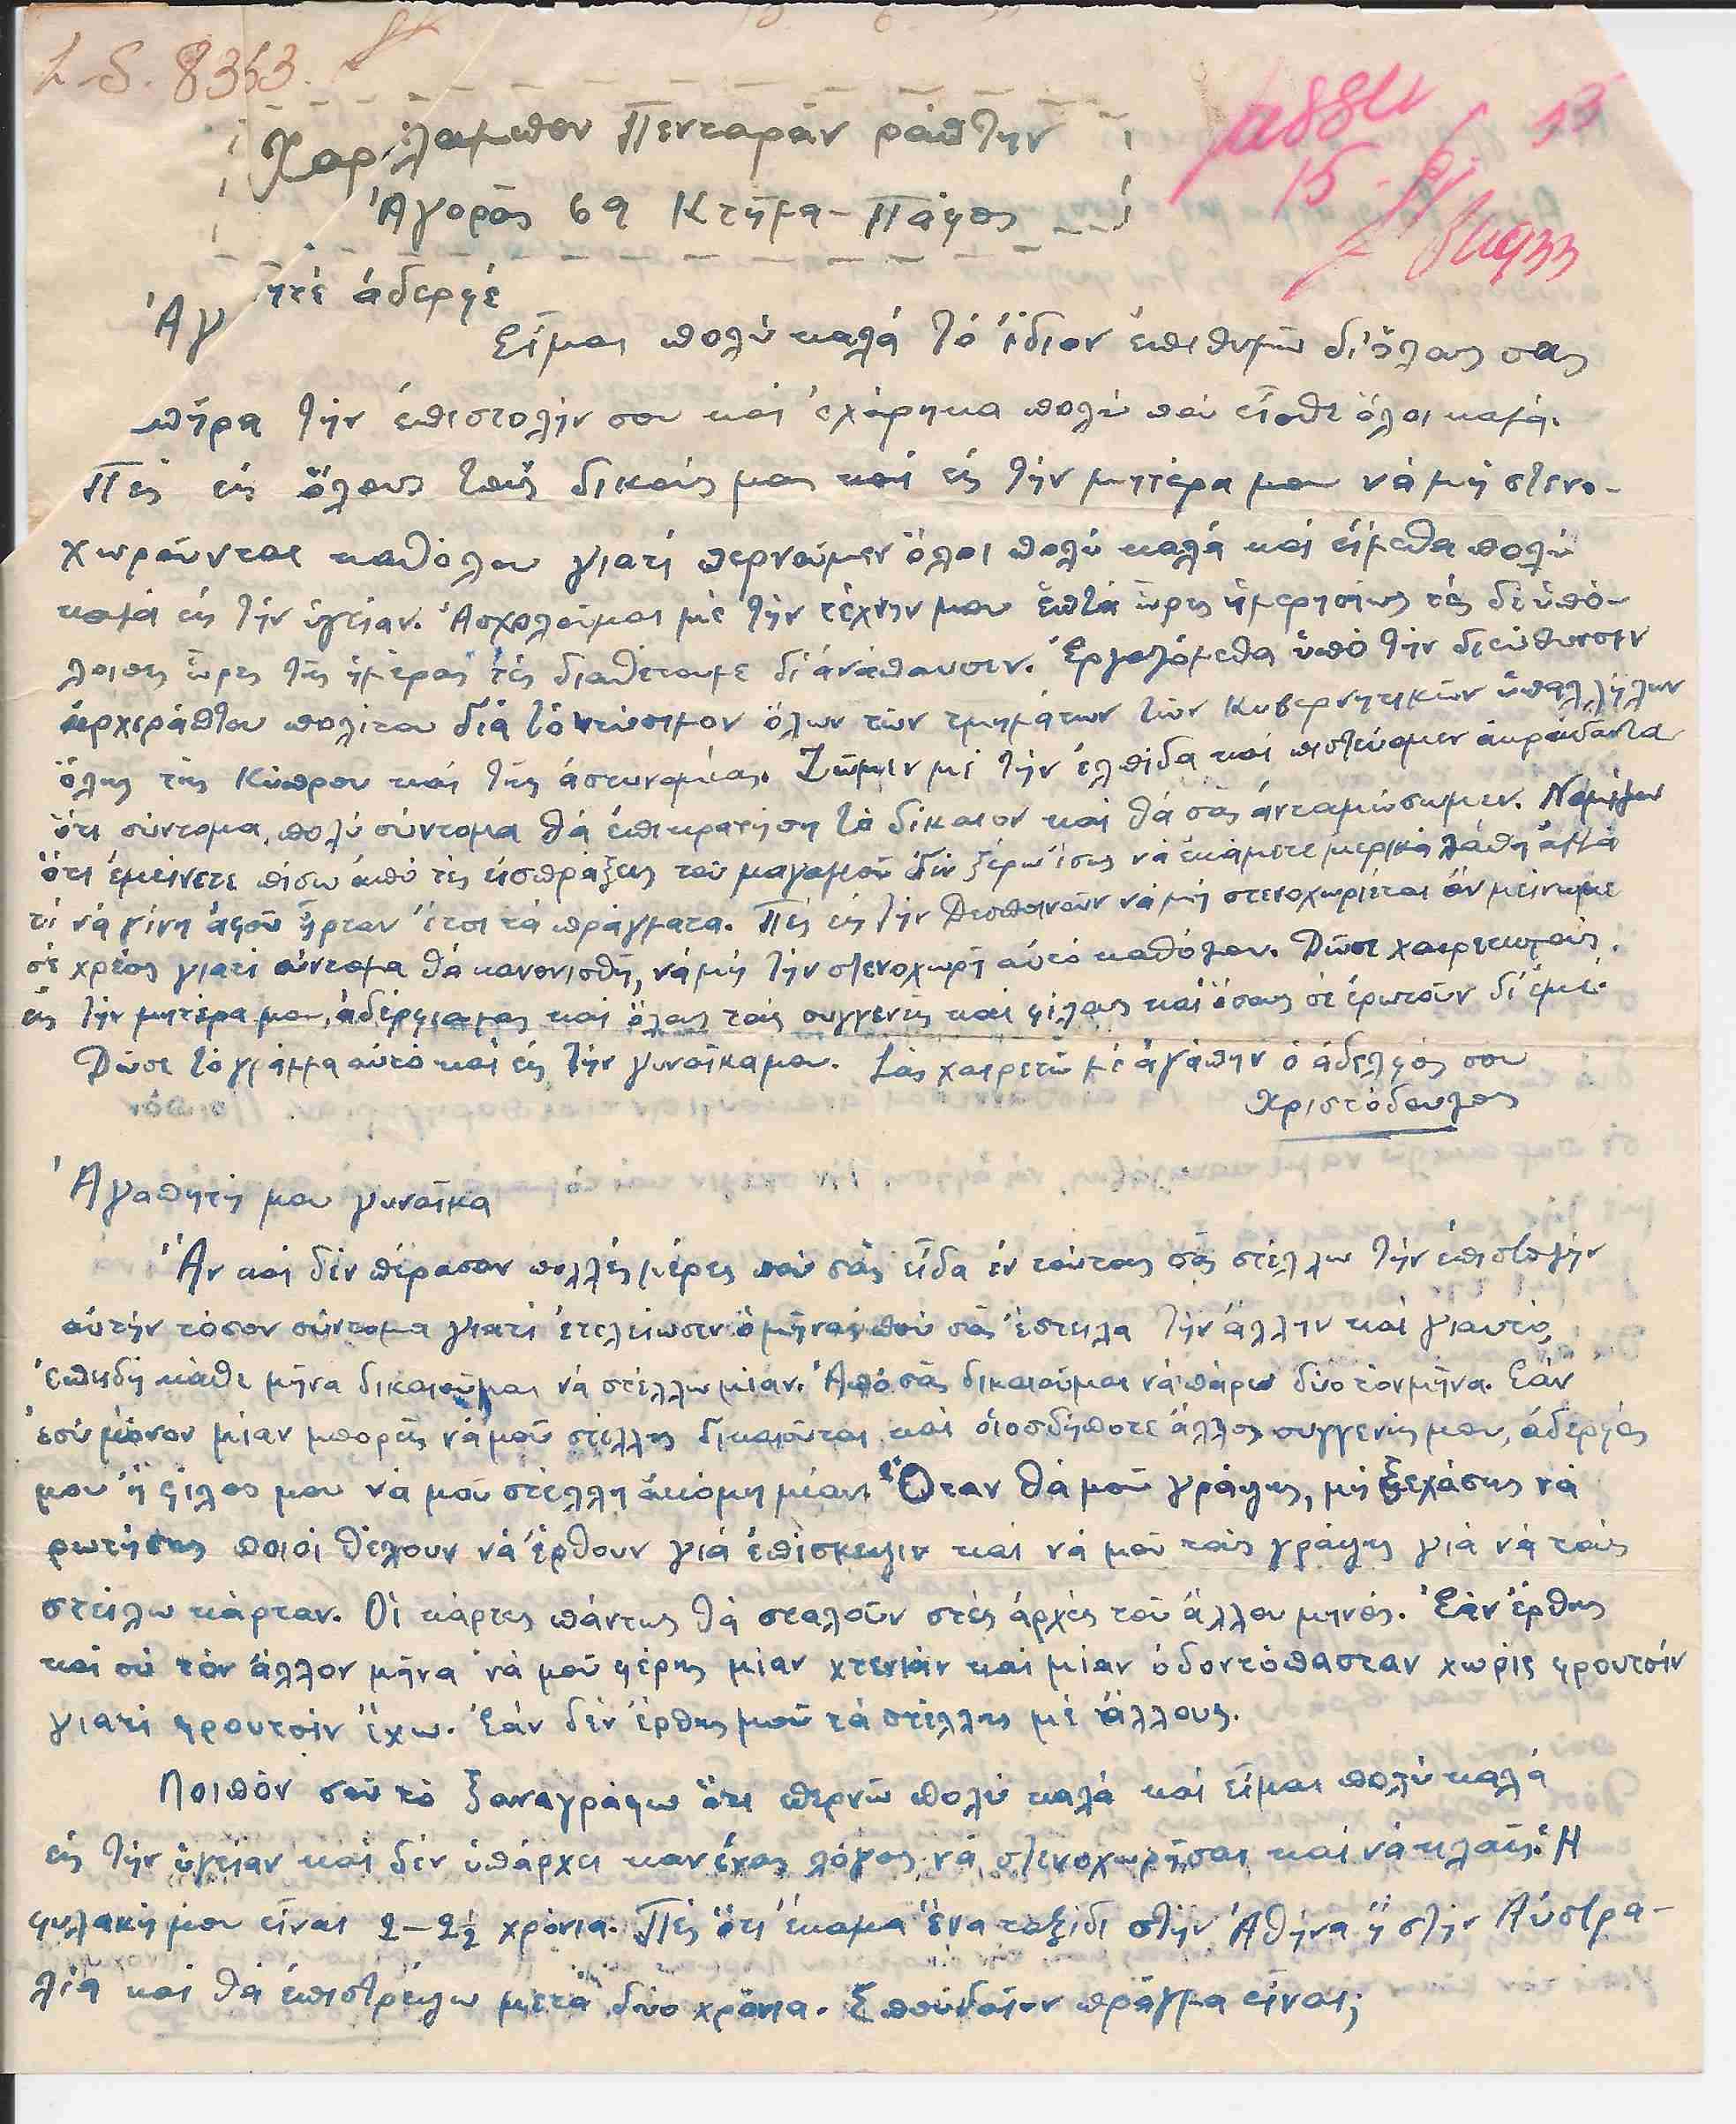 L.S. 8353.
Χαρ λαμπον Πενταράν ράπτην
Ἀγορᾶς 69 Κτῆμα - Πάφος
15
Ἀγ ητέ ἀδερφέ
Εἶμαι πολύ καλά τό ἴδιον ἐπιθυμῶ δι' ὅλους σας
πῆρα τήν ἐπιστολήν σου καί ἐχάρηκα πολύ πού εἶσθε ὅλοι καλά.
Πές εἰς ὅλους τούς δικούς μας καί εἰς τήν μητέρα μου νά μή στενο-
χωροῦνται καθόλου γιατί περνοῦμεν ὅλοι πολύ καλά καί εἴμεθα πολύ
καλά εἰς τήν ὑγείαν. Ἀσχολοῦμαι μέ τήν τέχνην μου ἑπτά ὧρες ἡμερησίως τές δέ ὑπό-
λοιπες ὧρες τῆς ἡμέρας τές διαθέτουμε δι' ἀνάπαυσιν. Ἐργαζόμεθα ὑπό τήν διεύθυνσιν
ἀρχιράπτου πολίτου διά τό ντύσιμον ὅλων τῶν τμημάτων τῶν Κυβερνητικῶν ὑπαλλήλων
ὅλης τῆς Κύπρου καί τῆς ἀστυνομίας. Ζῶμεν μέ τήν ἐλπίδα καί πιστεύομεν ἀκράδαντα
ὅτι σύντομα, πολύ σύντομα θά ἐπικρατήση τό δίκαιον καί θά σας ἀνταμώσωμεν. Νομίζω
ὅτι ἐμείνετε πίσω ἀπό τές εἰσπράξεις τοῦ μαγαζιοῦ δέν ξέρω ἴσως νά ἐκάμετε μερικά λάθη ἀλλά
τί νά γίνη ἀφοῦ ἦρταν ἔτσι τά πράγματα. Πές εἰς τήν Δεσποινοῦν νά μή στενοχωριέται ἄν μείνωμε
σέ χρέος γιατί σύντομα θά κανονισθῆ, νά μή τήν στενοχωρῆ αὐτό καθόλου. Δῶσε χαιρετισμούς
εἰς τήν μητέρα μου, ἀδέρφια μας καί ὅλους τούς συγγενεῖς καί φίλους καί ὅσους σέ ἐρωτοῦν δι' ἐμέ.
Δῶσε τό γράμμα αὐτό καί εἰς τήν γυναῖκα μου. Σᾶς χαιρετῶ μέ ἀγάπην ὁ ἀδελφός σου
Χριστόδουλος
Ἀγαπητή μου γυναῖκα
Ἄν καί δέν πέρασαν πολλές μέρες πού σᾶς εἶδα ἐν τούτοις σᾶς στέλλω τήν ἐπιστολήν
αὐτήν τόσον σύντομα γιατί ἐτελείωσεν ὁ μῆνας πού σᾶς ἔστειλα τήν ἄλλην καί γιαυτό,
ἐπειδή κάθε μῆνα δικαιοῦμαι νά στέλλω μίαν. Ἀπό σᾶς δικαιοῦμαι νά πάρω δύο τόν μῆνα. Ἐάν
ἐσύ μόνον μίαν μπορεῖς νά μοῦ στέλλης δικαιοῦται καί οἱοσδήποτε ἄλλος συγγενής μου, ἀδερφός
μου ἤ φίλος μου νά μοῦ στέλλη ἀκόμη μίαν. Ὅταν θά μοῦ γράψης, μή ξεχάσης νά
ρωτήσης ποιοί θέλουν νά ἔρθουν γιά ἐπίσκεψιν καί νά μοῦ τούς γράψης γιά νά τούς
στείλω κάρταν. Οἱ κάρτες πάντως θά σταλοῦν στές ἀρχές τοῦ ἄλλου μηνός. Ἐάν ἔρθης
καί σύ τόν ἄλλον μῆνα νά μοῦ φέρης μίαν χτενιάν καί μίαν ὀδοντόπασταν χωρίς φρουτσίν
γιατί φρουτσίν ἔχω. Ἐάν δέν ἔρθης μοῦ τά στέλλης μέ ἄλλους.
Λοιπόν σοῦ τό ξαναγράφω ὅτι περνῶ πολύ καλά καί εἶμαι πολύ καλά
εἰς τήν ὑγείαν καί δέν ὑπάρχει κανένας λόγος νά στενοχωρῆσαι καί νά κλαῖς. Ἡ
φυλακή μου εἶναι 2-2½ χρόνια. Πές ὅτι ἔκαμα ἕνα ταξίδι στήν Ἀθήνα ἤ στήν Αὐστρα-
λία καί θά ἐπιστρέψω μετά δύο χρόνια. Σπουδαῖον πρᾶγμα εἶναι;